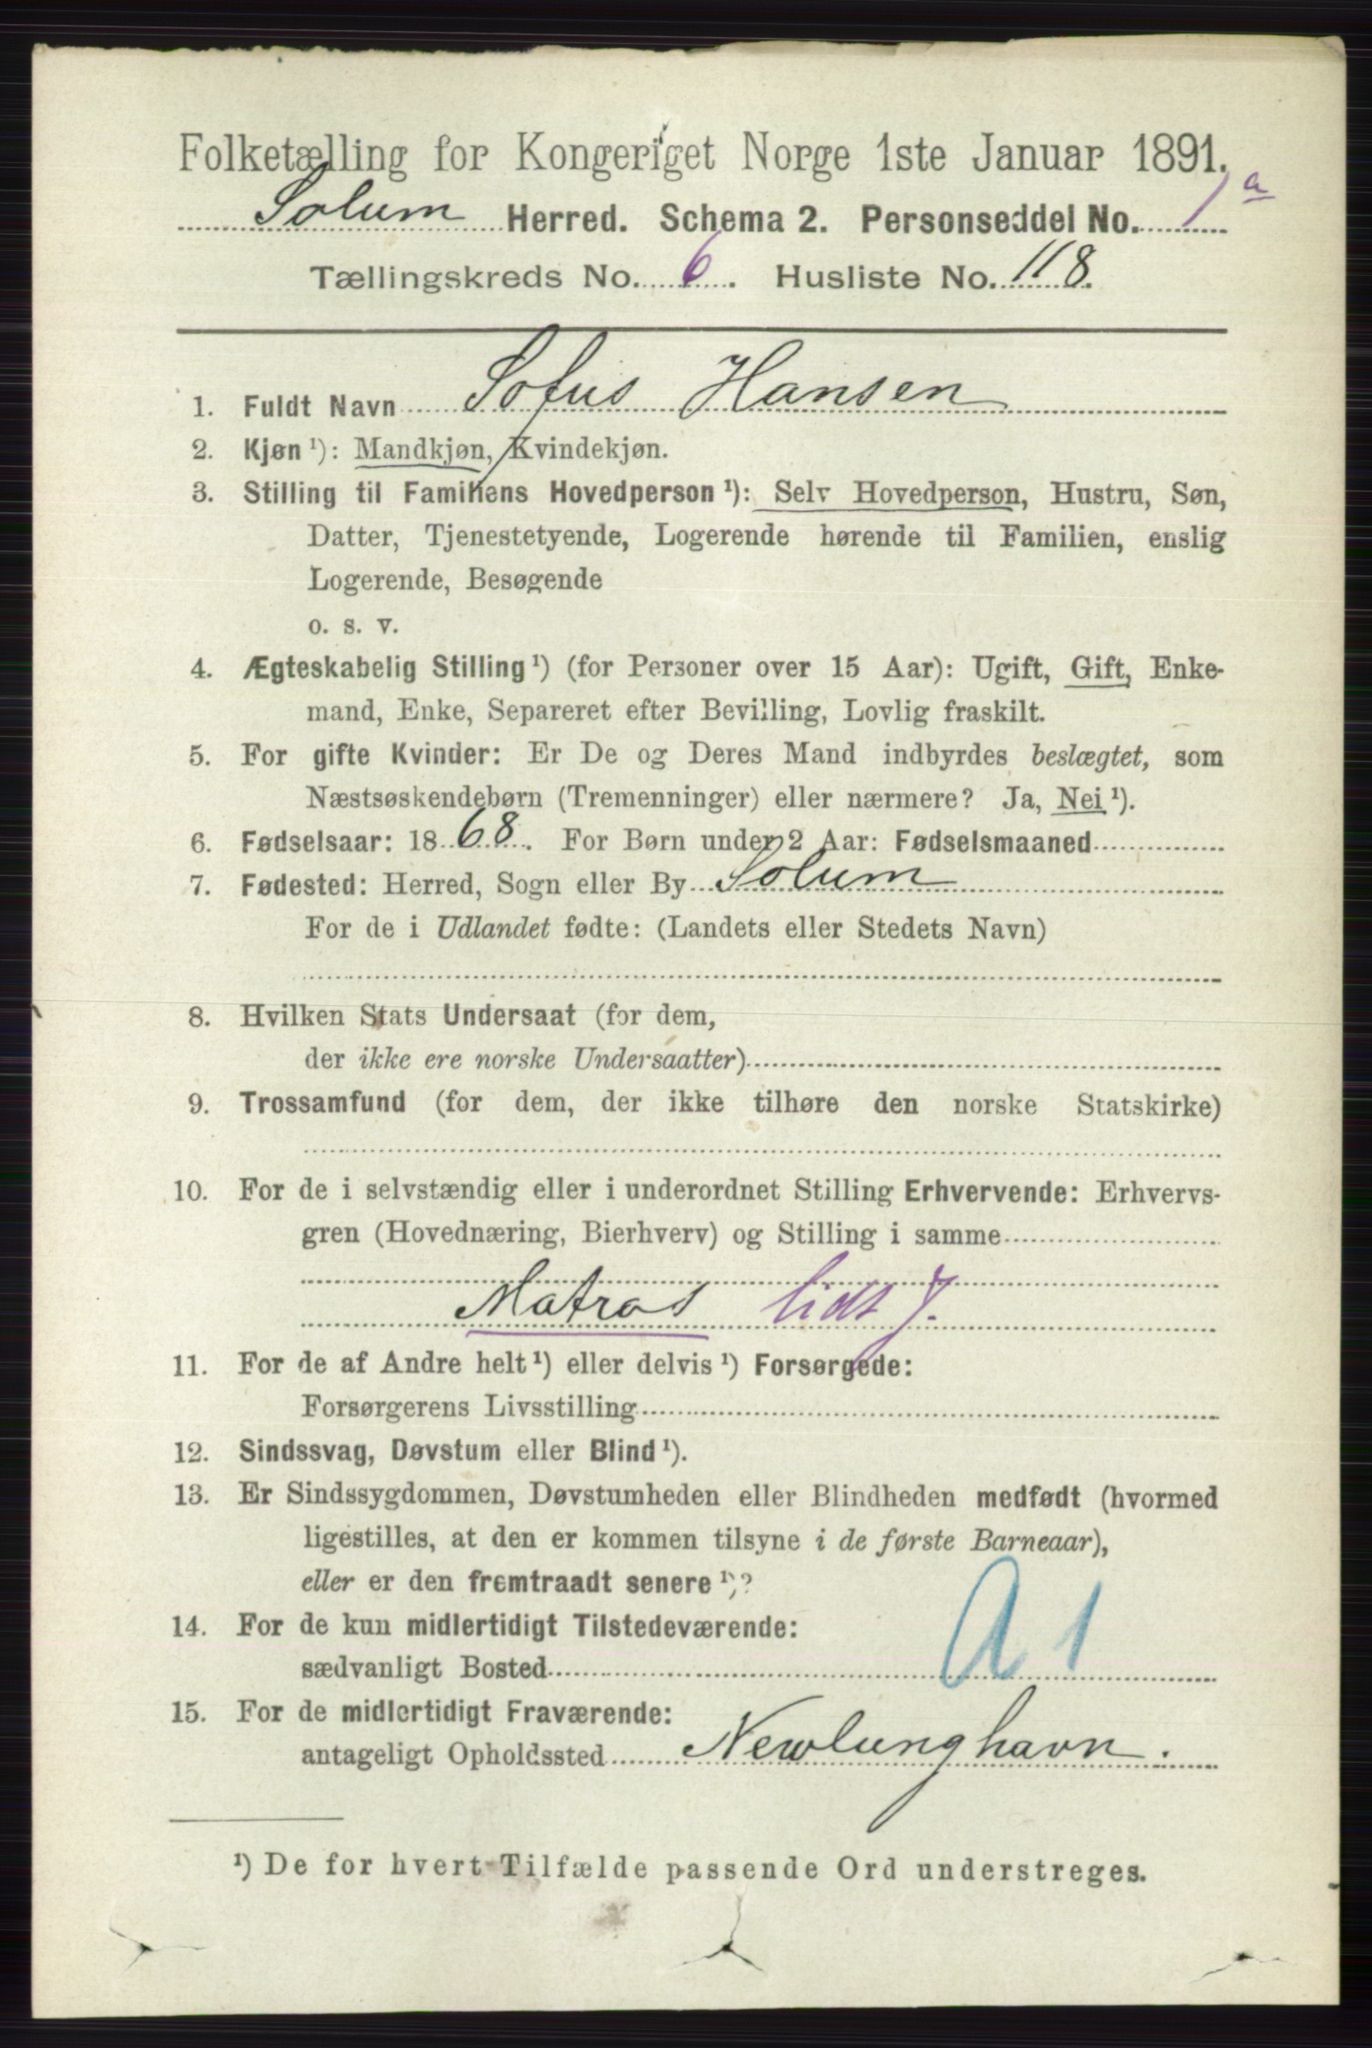 Folketælling for Kongeriget Norge 1ste Januar 1891.
Solum Herred. Schema 2. Personseddel No. 1 a
Tællingskreds No. 6. Husliste No. 118.
1. Fuldt Navn Sofus Hansen
2. Kjøn ¹): Mandkjøn, Kvindekjøn.
3. Stilling til Familiens Hovedperson ¹): Selv Hovedperson, Hustru, Søn,
Datter, Tjenestetyende, Logerende hørende til Familien, enslig
Logerende, Besøgende
o. s. v.
4. Ægteskabelig Stilling ¹) (for Personer over 15 Aar): Ugift, Gift, Enke-
mand, Enke, Separeret efter Bevilling, Lovlig fraskilt.
5. For gifte Kvinder: Er De og Deres Mand indbyrdes beslægtet, som
Næstsøskendebørn (Tremenninger) eller nærmere? Ja, Nei ¹).
6. Fødselsaar: 1868. For Børn under 2 Aar: Fødselsmaaned
7. Fødested: Herred, Sogn eller By Solum
For de i Udlandet fødte: (Landets eller Stedets Navn)
8. Hvilken Stats Undersaat (for dem,
der ikke ere norske Undersaatter)
9. Trossamfund (for dem, der ikke tilhøre den norske Statskirke)
10. For de i selvstændig eller i underordnet Stilling Erhvervende: Erhvervs-
gren (Hovednæring, Bierhverv) og Stilling i samme
Matros
11. For de af Andre helt ¹) eller delvis ¹) Forsørgede:
Forsørgerens Livsstilling
12. Sindssvag, Døvstum eller Blind ¹).
13. Er Sindssygdommen, Døvstumheden eller Blindheden medfødt (hvormed
ligestilles, at den er kommen tilsyne i de første Barneaar),
eller er den fremtraadt senere ¹)?
14. For de kun midlertidigt Tilstedeværende:
sædvanligt Bosted
A 1
15. For de midlertidigt Fraværende:
antageligt Opholdssted Newlunghavn.
¹) De for hvert Tilfælde passende Ord understreges.